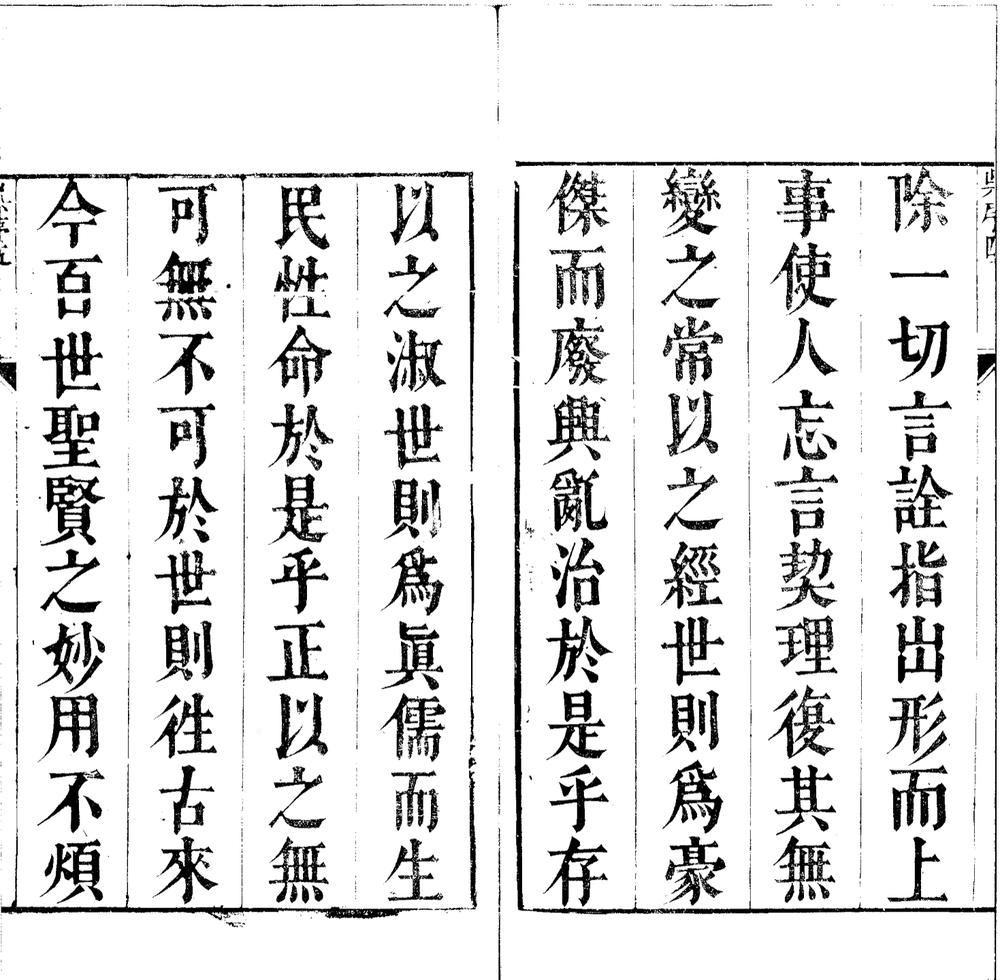 除一切言詮指出形而上
事使人忘言契理復其無
變之常以之經世則爲豪
傑而廢興亂治於是乎存
以之淑世則爲眞儒而生
民性命於是乎正以之無
可無不可於世則徃古來
今百世聖賢之妙用不煩